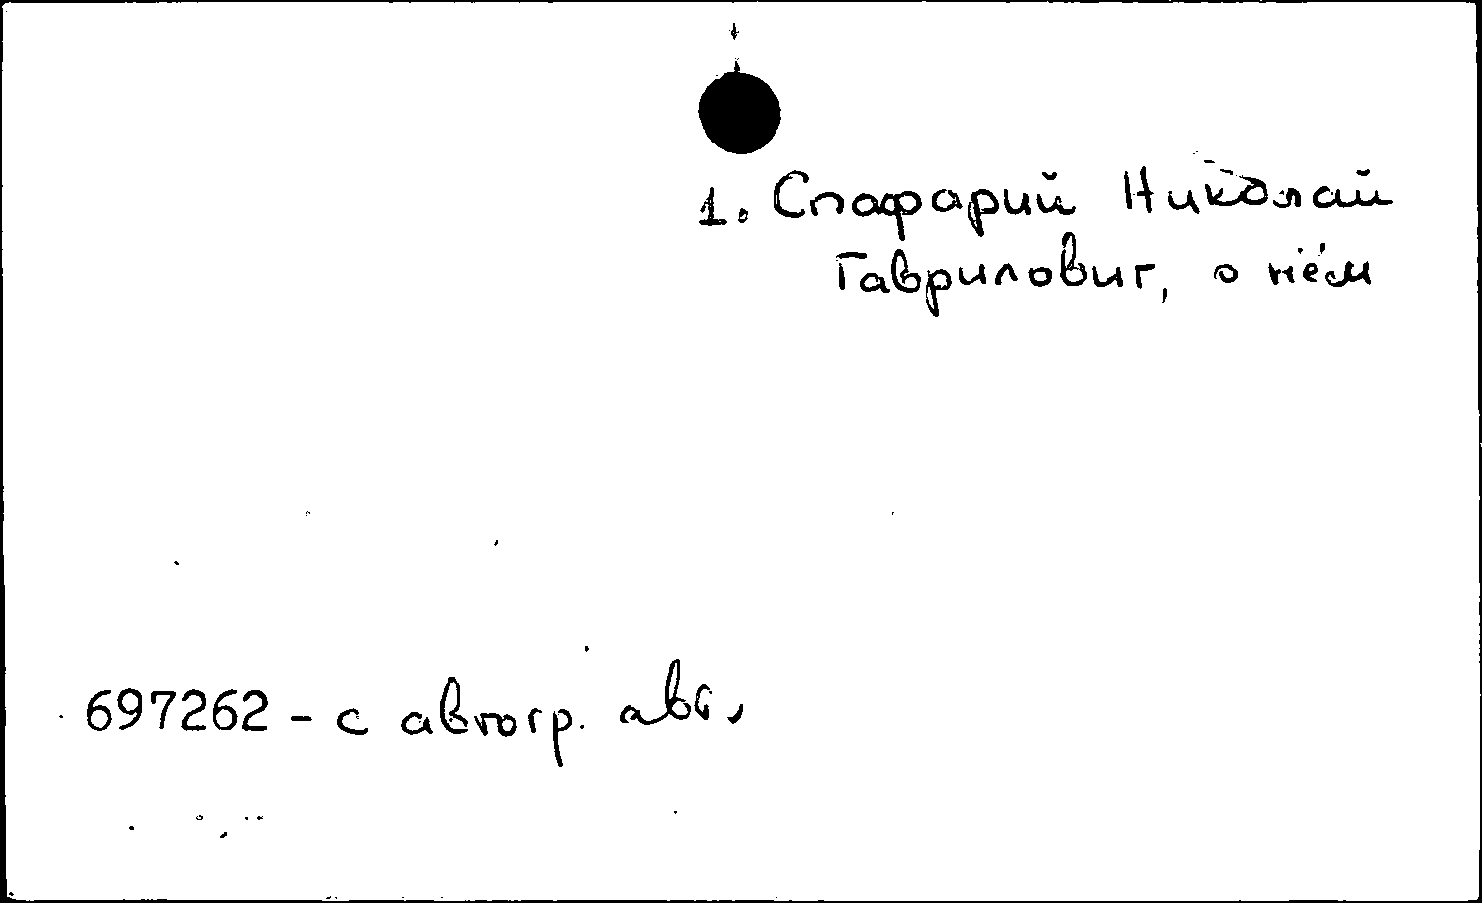 1. Спафарий Николай
Гаврилович, о нём
697262 - с автогр. авт.